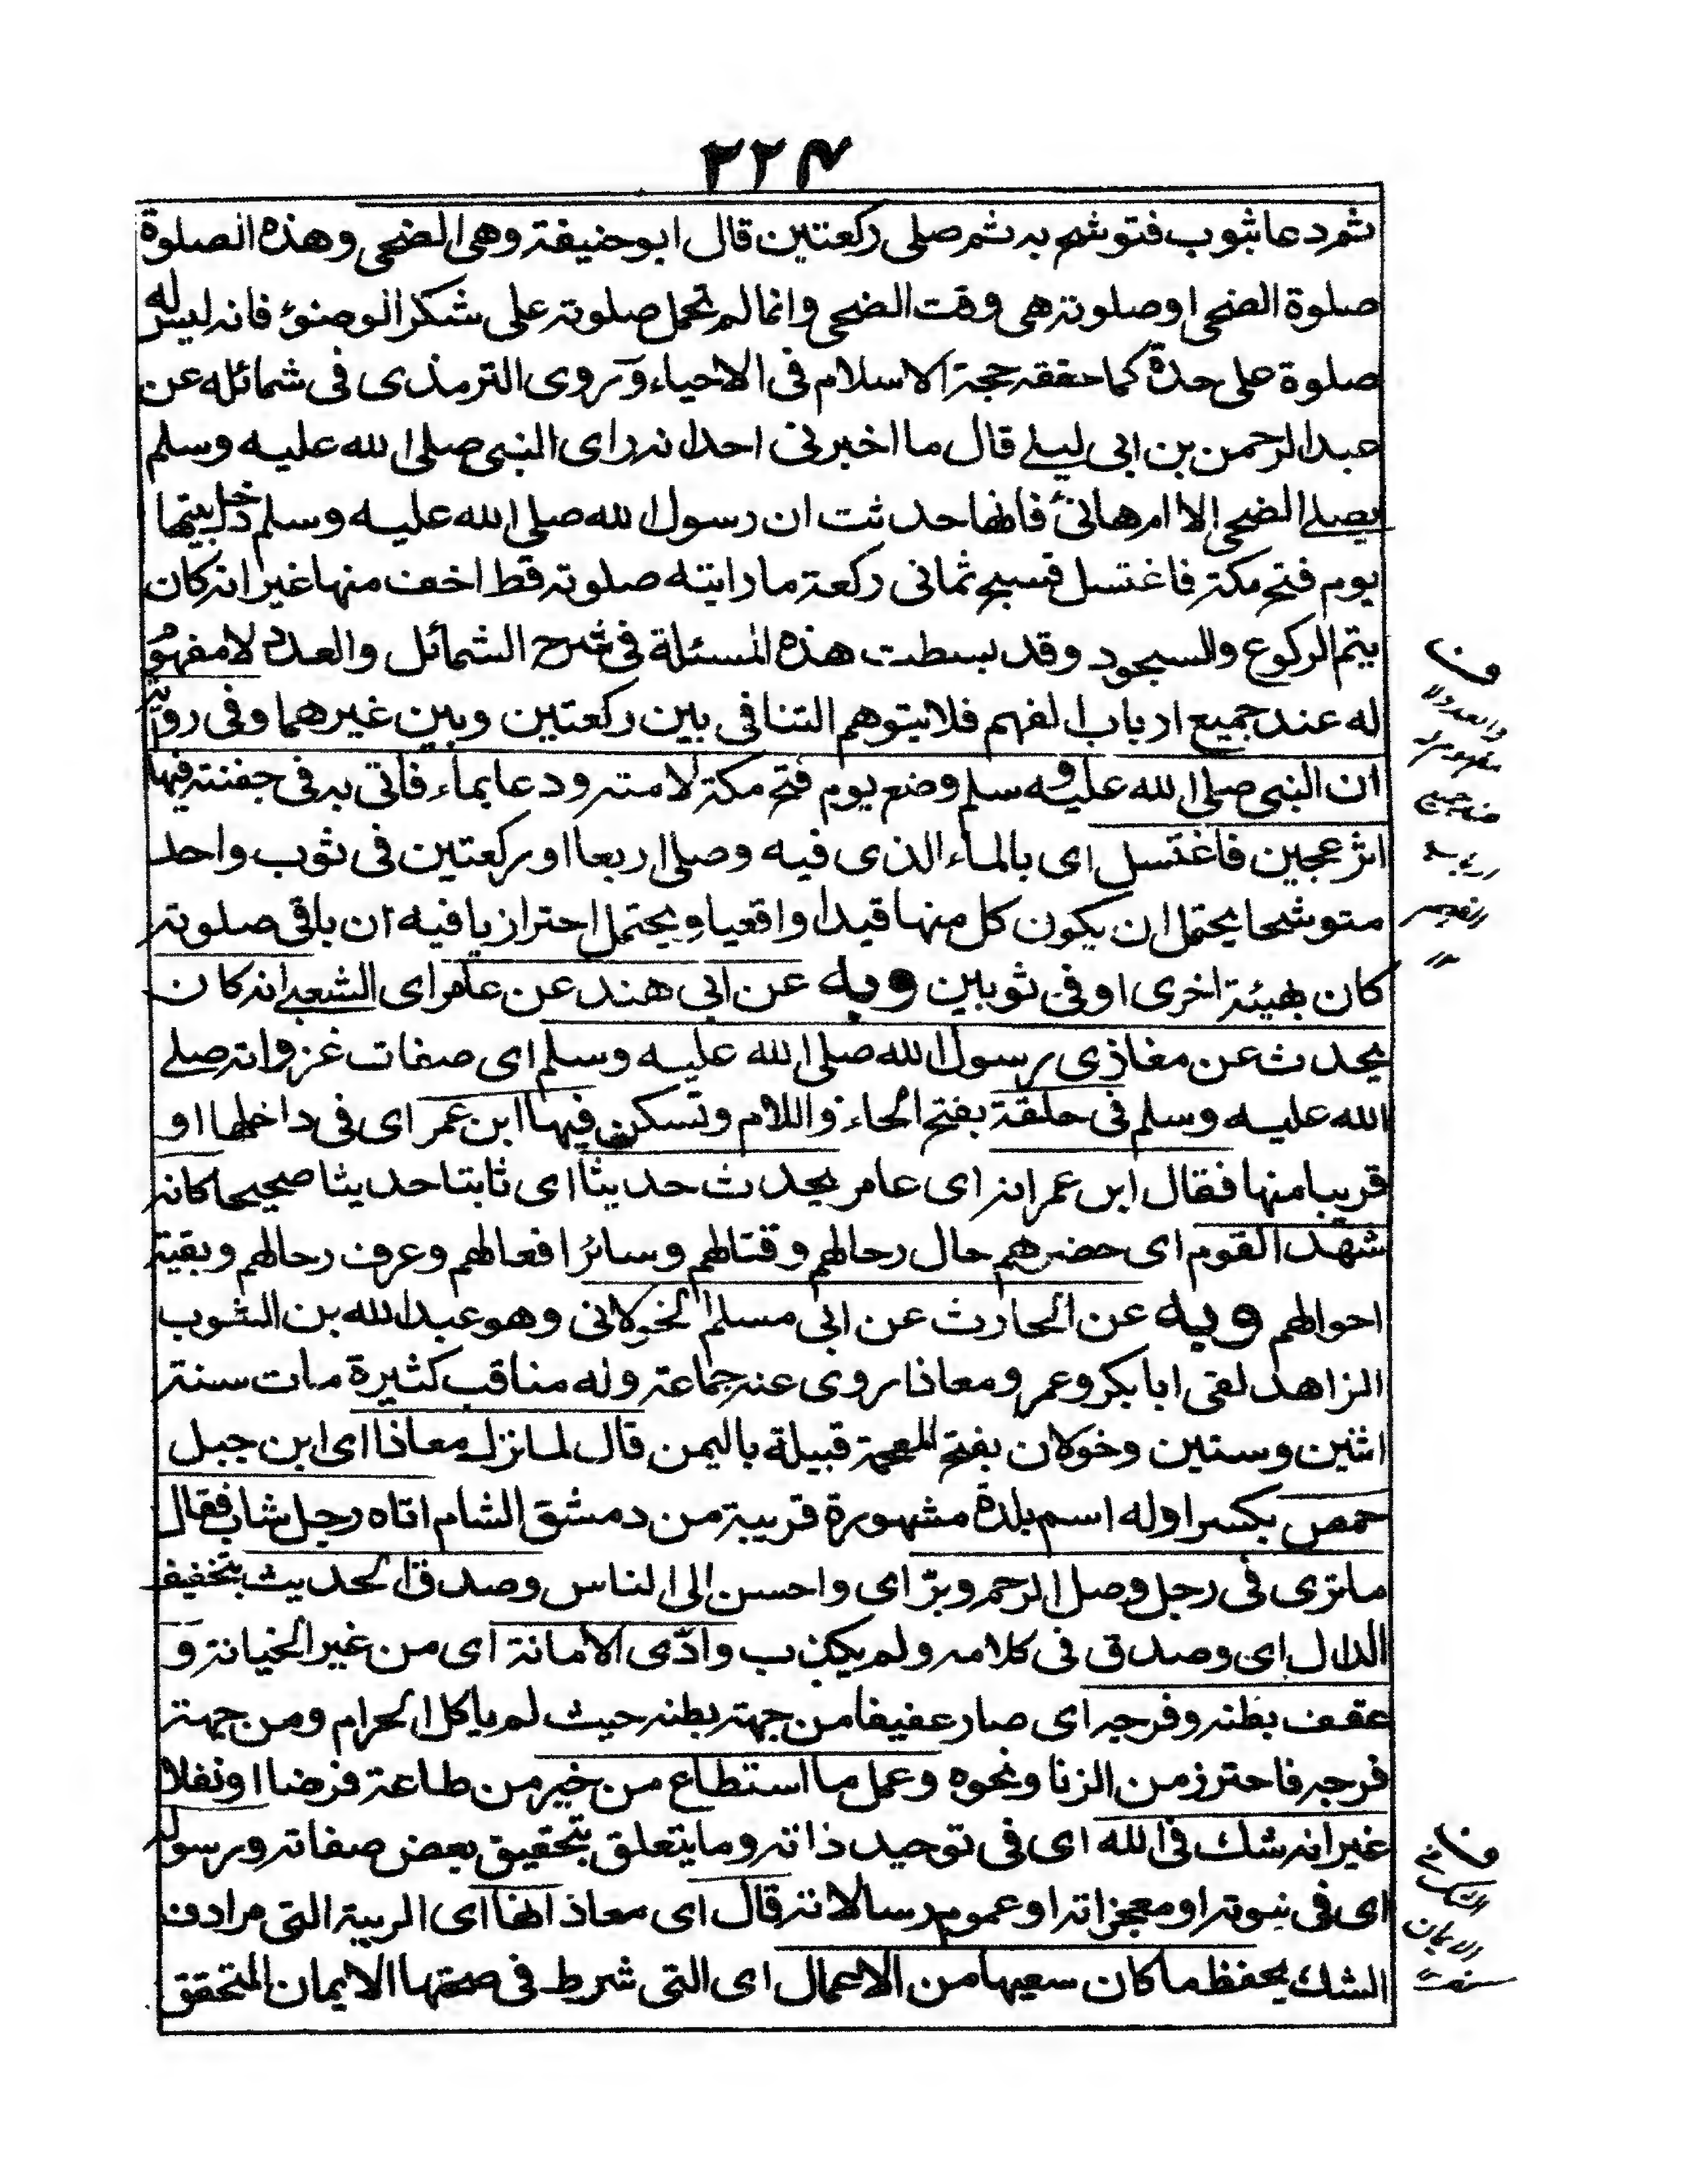 ۲۲۴
ثم دعا بثوب فتوشح به ثم صلى ركعتين قال ابوحنيفة وهى الضحى وهذه الصلوة
صلوة الضحى اوصلوته هى وقت الضحى وانما لم تحمل صلوته على شكر الوضوء فانه ليس له
صلوة على حدة كما حققه حجة الاسلام فى الاحياء وروى الترمذى فى شمائله عن
عبد الرحمن بن ابى ليلى قال ما اخبرنى احد انه راى النبى صلى الله عليه وسلم
يصلى الضحى الا ام هانئ فانها حدثت ان رسول الله صلى الله عليه وسلم دخل بيتها
يوم فتح مكة فاغتسل فسبح ثمانى ركعة ما رايته صلوته قط اخف منها غير انه كان
يتم الركوع والسجود وقد بسطت هذه المسئلة فى شرح الشمائل والعدد لا مفهوم
له عند جميع ارباب الفهم فلا يتوهم التنافى بين ركعتين وبين غيرهما وفى رواية
ان النبى صلى الله عليه وسلم وضع يوم فتح مكة لامته ودعا بماء فأتى به فى جفنة فيها
اثر عجين فاغتسل اى بالماء الذى فيه وصلى اربعا او ركعتين فى ثوب واحد
متوشحا يحتمل ان يكون كل منها قيدا واقعيا ويحتمل احترازيا فيه ان باقى صلوته
كان بهيئة اخرى او فى ثوبين وبه عن ابى هند عن عامر اى الشعبى انه كان
يحدث عن مغازى رسول الله صلى الله عليه وسلم اى صفات غزواته صلى
الله عليه وسلم فى حلقة بفتح الحاء واللام وتسكن فيها ابن عمر اى فى داخلها او
قريبا منها فقال ابن عمر انه اى عامر يحدث حديثا اى ثابتا حديثا صحيحا كانه
شهد القوم اى حضرهم حال رحالهم وقتالهم وسائر افعالهم وعرف رحالهم وبقية
احوالهم وبه عن الحارث عن ابى مسلم الخولانى وهو عبد الله بن الثوب
الزاهد لقى ابا بكر وعمر ومعاذا روى عنه جماعة وله مناقب كثيرة مات سنة
اثنين وستين وخولان بفتح المعجمة قبيلة باليمن قال لما نزل معاذا اى ابن جبل
حمص بكسر اوله اسم بلدة مشهورة قريبة من دمشق الشام اتاه رجل شاب فقال
ما ترى فى رجل وصل الرحم وبرّ اى واحسن الى الناس وصدق الحديث بتخفيف
الدال اى وصدق فى كلامه ولم يكذب وادّى الامانة اى من غير الخيانة و
عفف بطنه وفرجه اى صار عفيفا من جهة بطنه حيث لم ياكل الحرام ومن جهة
فرجه فاحترز من الزنا ونحوه وعمل ما استطاع من خير من طاعة فرضا او نفلا
غير انه شك فى الله اى فى توحيد ذاته وما يتعلق بتحقيق بعض صفاته ورسوله
اى فى نبوته او معجزاته او عموم رسالاته قال اى معاذ انها اى الريبة التى مرادف
الشك يحفظ ما كان سعيها من الاعمال اى التى شريط فى صحتها الايمان المتحقق